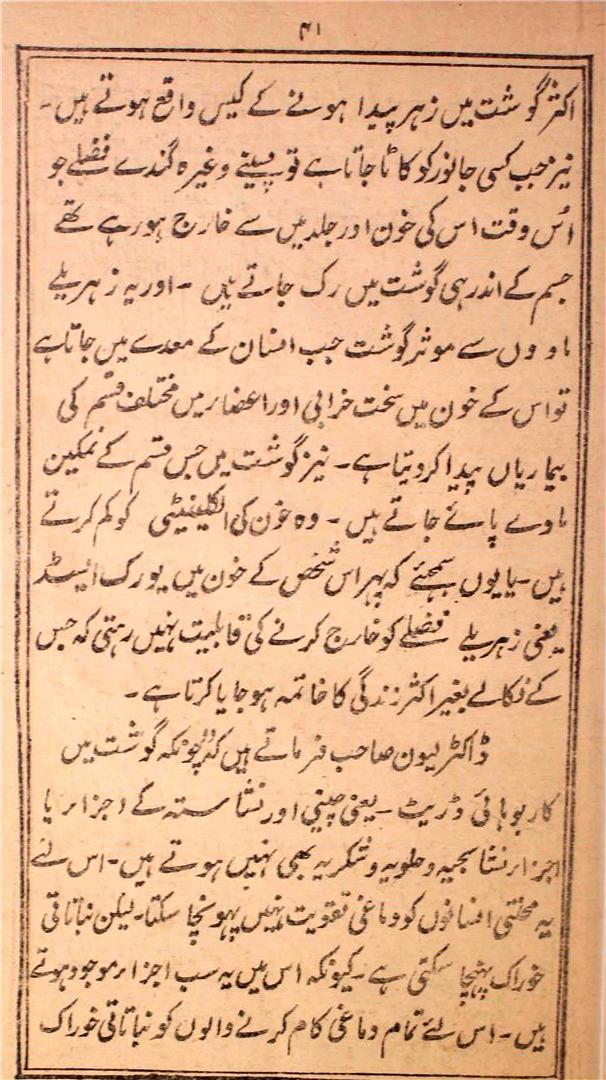 ۴۱
اکثر گوشت میں زہر پیدا ہونے کے کیس واقع ہوتے ہیں۔
نیز جب کسی جانور کو کاٹا جاتا ہے تو پسینے وغیرہ گندے فضلے جو
اُس وقت اس کی خون اور جلد میں سے خارج ہو رہے تھے
جسم کے اندر ہی گوشت میں رک جاتے ہیں ۔ اور یہ زہریلے
مادوں سے موثر گوشت جب انسان کے معدے میں جاتا ہے
تو اس کے خون میں سخت خرابی اور اعضار میں مختلف قسم کی
بیماریاں پیدا کر دیتا ہے۔ نیز گوشت میں جس قسم کے نمکین
مادے پائے جاتے ہیں ۔ وہ خون کی الکلینیٹی کو کم کرتے
ہیں ۔ یا یوں سمجھئے کہ پھر اس شخص کے خون میں یورک ایسڈ
یعنی زہریلے فضلے کو خارج کرنے کی قابلیت نہیں رہتی کہ جس
کے نکالے بغیر اکثر زندگی کا خاتمہ ہو جایا کرتا ہے۔
ڈاکٹر لیون صاحب فرماتے ہیں کہ "چونکہ گوشت میں
کاربوہائی ڈریٹ ۔ یعنی چینی اور نشاستہ کے اجزار یا
اجزار نشا سجیہ و حلویہ و شکریہ بھی نہیں ہوتے ہیں۔ اس لئے
یہ محنتی انسانوں کو دماغی تقویت نہیں پہونچا سکتا۔ لیکن نباتاتی
خوراک پہنچا سکتی ہے۔ کیونکہ اس میں یہ سب اجزار موجود ہوتے
ہیں۔ اس لئے تمام دماغی کام کرنے والوں کو نباتاتی خوراک